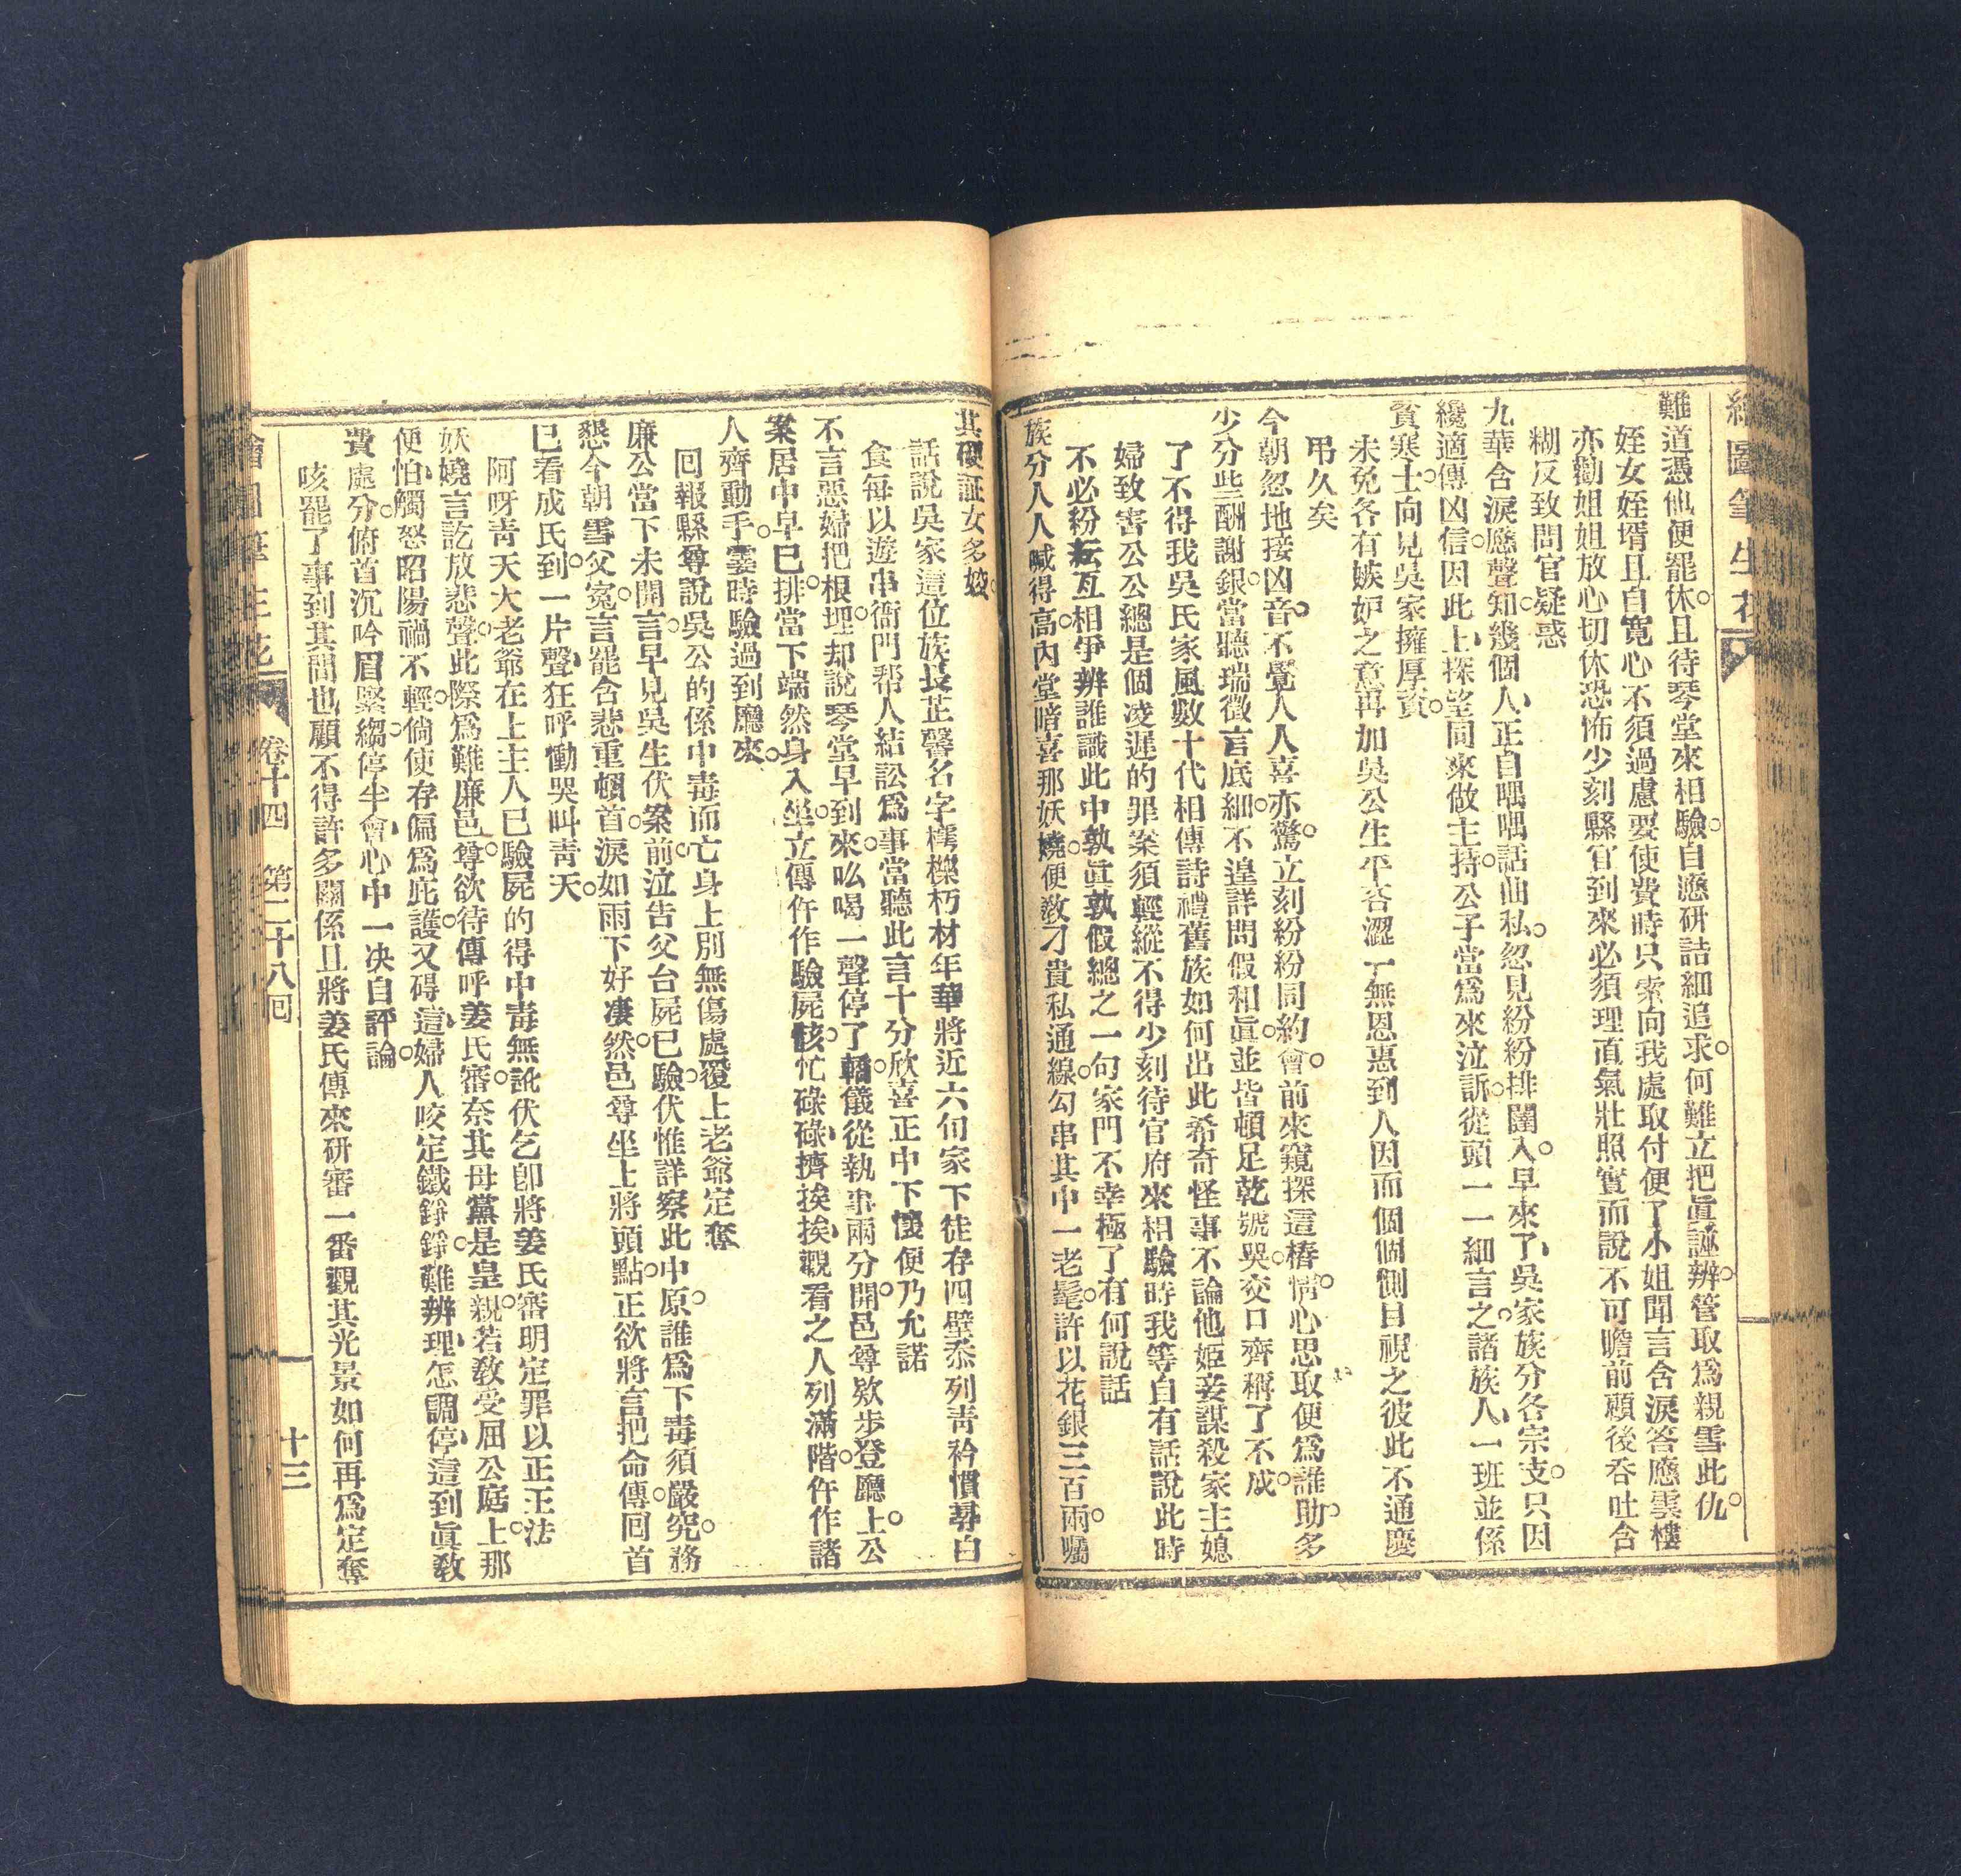 繪圖筆生花
難道憑他便罷休。且待琴堂來相驗。自應研詰細追求。何難立把眞誣辨。管取爲親雪此仇。
姪女姪壻且自寬心不須過慮要使費時只索向我處取付便了小姐聞言含淚答應雲樓
亦勸姐姐放心切休恐怖少刻縣官到來必須理直氣壯照實而說不可瞻前顧後吞吐含
糊反致問官疑惑
九華含淚應聲知。幾個人、正自喁喁話曲私。忽見紛紛排闥入。早來了、吳家族分各宗支。只因
纔適傳凶信。因此上、探望同來做主持。公子當爲來泣訴。從頭一一細言之。諸族人、一班並係
貧寒士。向見吳家擁厚資。
未免各有嫉妒之意再加吳公生平吝澀了無恩惠到人因而個個側目視之彼此不通慶
弔久矣
今朝忽地接凶音。不覺人人喜亦驚。立刻紛紛同約會。前來窺探這樁情。心思取便爲誰助。多
少分些酬謝銀。當聽瑞徵言底細。不遑詳問假和眞。並皆頓足乾號哭。交口齊稱了不成。
了不得我吳氏家風數十代相傳詩禮舊族如何出此希奇怪事不論他姬妾謀殺家主媳
婦致害公公總是個凌遲的罪案須輕縱不得少刻待官府來相驗時我等自有話說此時
不必紛紜互相爭辨誰識此中孰眞孰假總之一句家門不幸極了有何說話
族分人人喊得高。內堂暗喜那妖嬈。便教刁貴私通線。勾串其中一老髦。許以花銀三百兩。囑
其硬証女多姣。
話說吳家這位族長芷馨名字樗櫟朽材年華將近六旬家下徒存四壁忝列靑衿慣尋白
食每以遊串衙門帮人結訟爲事當聽此言十分欣喜正中下懷便乃允諾
不言惡婦把根埋。却說琴堂早到來。吆喝一聲停了轎。儀從執事兩分開。邑尊欵步登廳上。公
案居中早已排。當下端然身入坐。立傳仵作驗屍骸。忙碌碌、擠挨挨、觀看之人列滿階。仵作諸
人齊動手。霎時驗過到廳來。
回報縣尊說吳公的係中毒而亡身上別無傷處覆上老爺定奪
廉公當下未開言。早見吳生伏案前。泣告父台屍已驗。伏惟詳察此中原。誰爲下毒須嚴究。務
懇今朝雪父寃。言罷含悲重頓首。淚如雨下好凄然。邑尊坐上將頭點。正欲將言把命傳。回首
已看成氏到。一片聲、狂呼慟哭叫靑天。
阿呀靑天大老爺在上主人已驗屍的得中毒無訛伏乞卽將姜氏審明定罪以正王法
妖嬈言訖放悲聲。此際爲難廉邑尊。欲待傳呼姜氏審。奈其母黨是皇親。若敎受屈公庭上。那
便怕、觸怒昭陽禍不輕。倘使存偏爲庇護。又碍這、婦人咬定鐵錚錚。難辨理、怎調停、這到眞敎
費處分。俯首沉吟眉緊縐。停半會、心中一决自評論。
咳罷了事到其間也顧不得許多關係且將姜氏傳來研審一番觀其光景如何再爲定奪
卷十四 第二十八回
十三